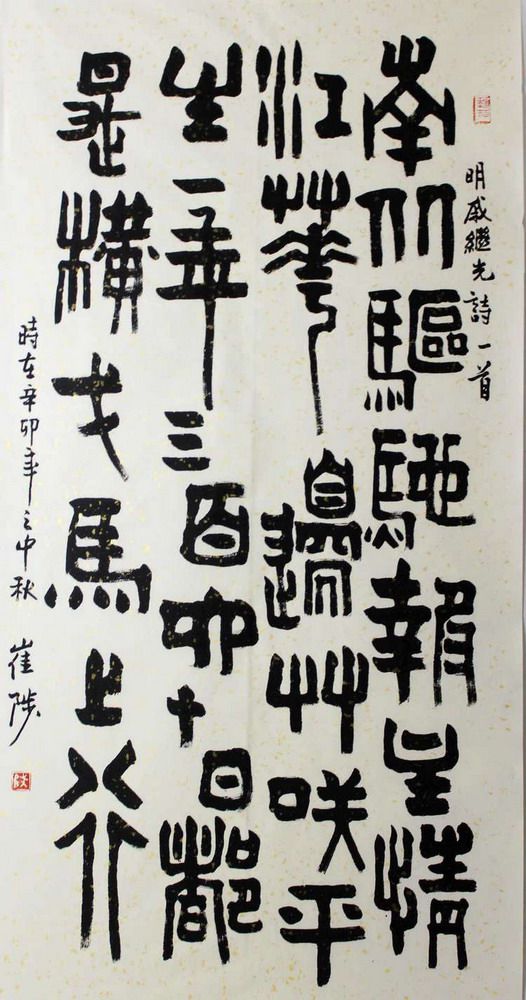 明戚繼光詩一首
南北驅馳報主情
江華邊艸咲平
生一年三百六十日都
是橫戈馬上行
時在辛卯年之中秋 崔陟